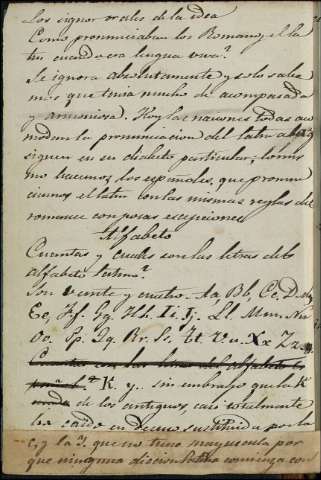 Los signos orales de la idea
Como pronunciaban los Romanos el la
tin cuando era lengua viva?
Se ignora absolutamente y solo sabe
mos que tenia mucho de acompasada
y armoniosa. Hoy las naciones todas aco
modan la pronunciacion del latin al que
siguen en su dialecto particular; lo mis
mo hacemos los españoles, que pronun
ciamos el latin con las mismas reglas del
romance con pocas escepciones
Alfabeto
Cuantas y cuales son las letras del
alfabeto latino?
Son veinte y cuatro. Aa, Bb, Cc, Dd,
Ee, Ff. Gg. Hh. Ii. Jj. Ll. Mm. Nn.
Oo. Pp. Qq. Rr. Ss. Tt. Vu. Xx Zz
K. y sin embargo que la K
de los antiguos, casi totalmente
ha caido en desuso sustituida por la
c, y la z. que no tuvo mayuscula por
que ninguna diccion latina comienza con